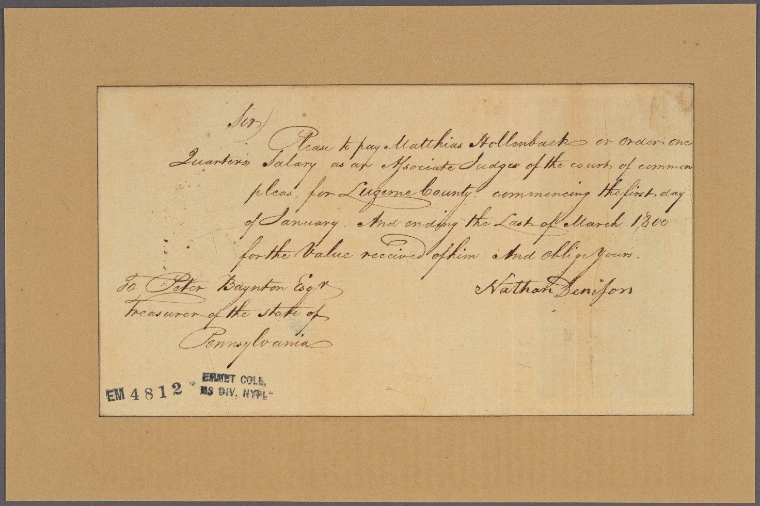 Sir)
Please to pay Matthias Hollenback or order one
Quarters Salary as an Associate Judges of the court of common
pleas for Luzerne County commencing the first day
of January And ending the Last of March 1800
for the Value received of him And oblige Yours.
Nathan Denison
To Peter Baynton Esqr
Treasurer of the state of
Pennsylvania
EM 4812
EMMET COLL.
MS DIV. NYPL